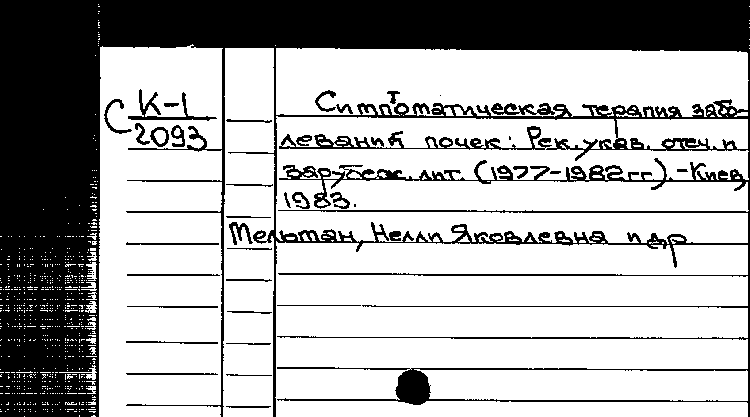 С К-1
2093
Симптоматическая терапия забо-
леваний почек: Рек. указ. отеч. и
зарубеж. лит. (1977-1982гг).-Киев,
1983.
Мельман, Нелли Яковлевна и др.